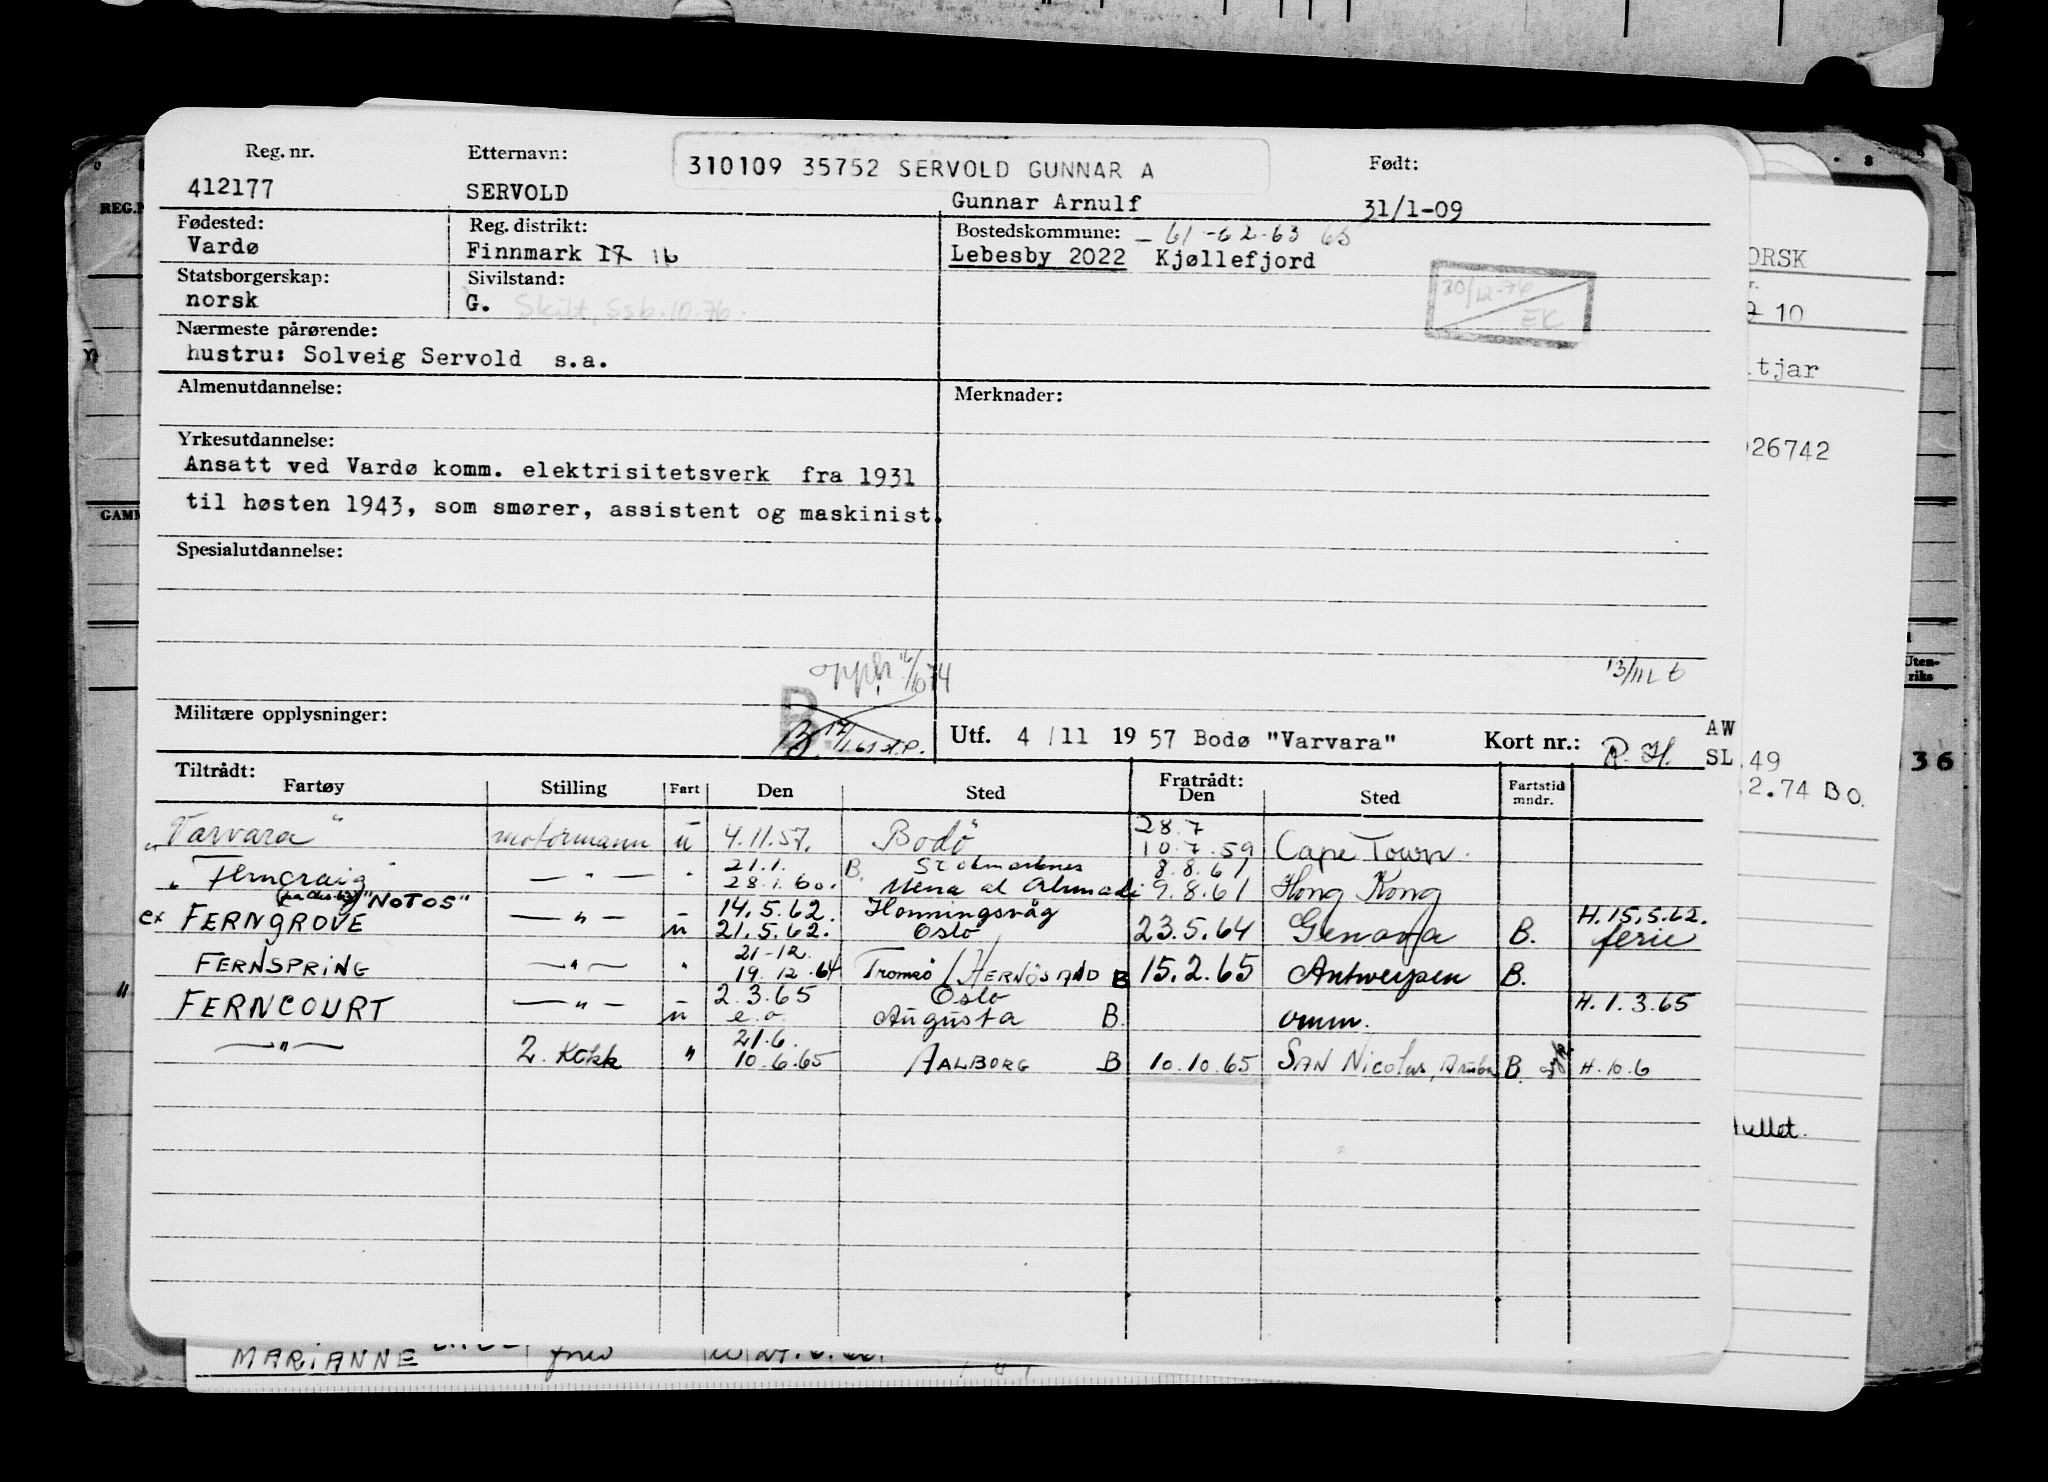 Reg. nr. Etternavn: 310109 35752 SERVOLD GUNNAR A Født:
412177 SERVOLD Gunnar Arnulf 31/1-09
Fødested: Reg. distrikt: Bostedskommune: - 61-62-63 65
Vardø Finnmark 17 16 Lebesby 2022 Kjøllefjord
Statsborgerskap: Sivilstand:
norsk G. Skilt, Ssb. 10.76. 30/12-76 EK
Nærmeste pårørende:
hustru: Solveig Servold s.a.
Almenutdannelse: Merknader:
Yrkesutdannelse:
Ansatt ved Vardø komm. elektrisitetsverk fra 1931
til høsten 1943, som smører, assistent og maskinist.
Spesialutdannelse:
Militære opplysninger: B
Utf. 4/11 1957 Bodø "Varvara" Kort nr.: R. H. AW
SL
Tiltrådt: Fratrådt:
Fartøy Stilling Fart Den Sted Den Sted Fartstid mndr.
"Varvara" motormann u 4.11.57. Bodø 28.7 10.7.59 Cape Town.
" Ferncraig — " — " 21.1. 28.1.60. B. Stokmarknes Mena al Ahmadi 8.8.61 9.8.61 Hong Kong
"NOTOS"
ex FERNGROVE — " — u 14.5.62. 21.5.62. Honningsvåg Oslo 23.5.64 Genova B. H. 15.5.62. ferie
FERNSPRING — " — " 21-12. 19.12.64 Tromsø / HERNÖSAND B 15.2.65 Antwerpen B.
" FERNCOURT — " — u 2.3.65 e.o. Oslo Augusta B. omm. H. 1.3.65
— " — 2. Kokk " 21.6. 10.6.65 AALBORG B 10.10.65 SAN Nicolas, Aruba B. H. 10.6
MARIANNE
REG.N
GAMM
ORSK
10
tjar
26742
Uten-
riks
49
36
2.74 B O.